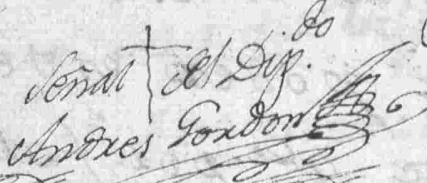 Señal del Dip.do
Andres Gordon